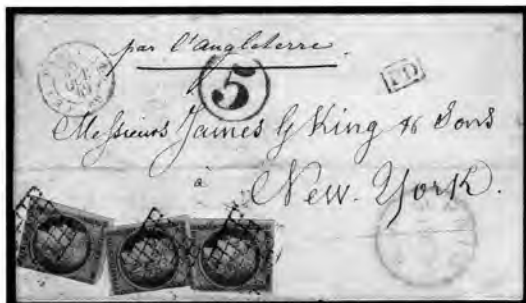 par l'angleterre.
5
PD
Messieurs James G King & Sons
à
New-York.